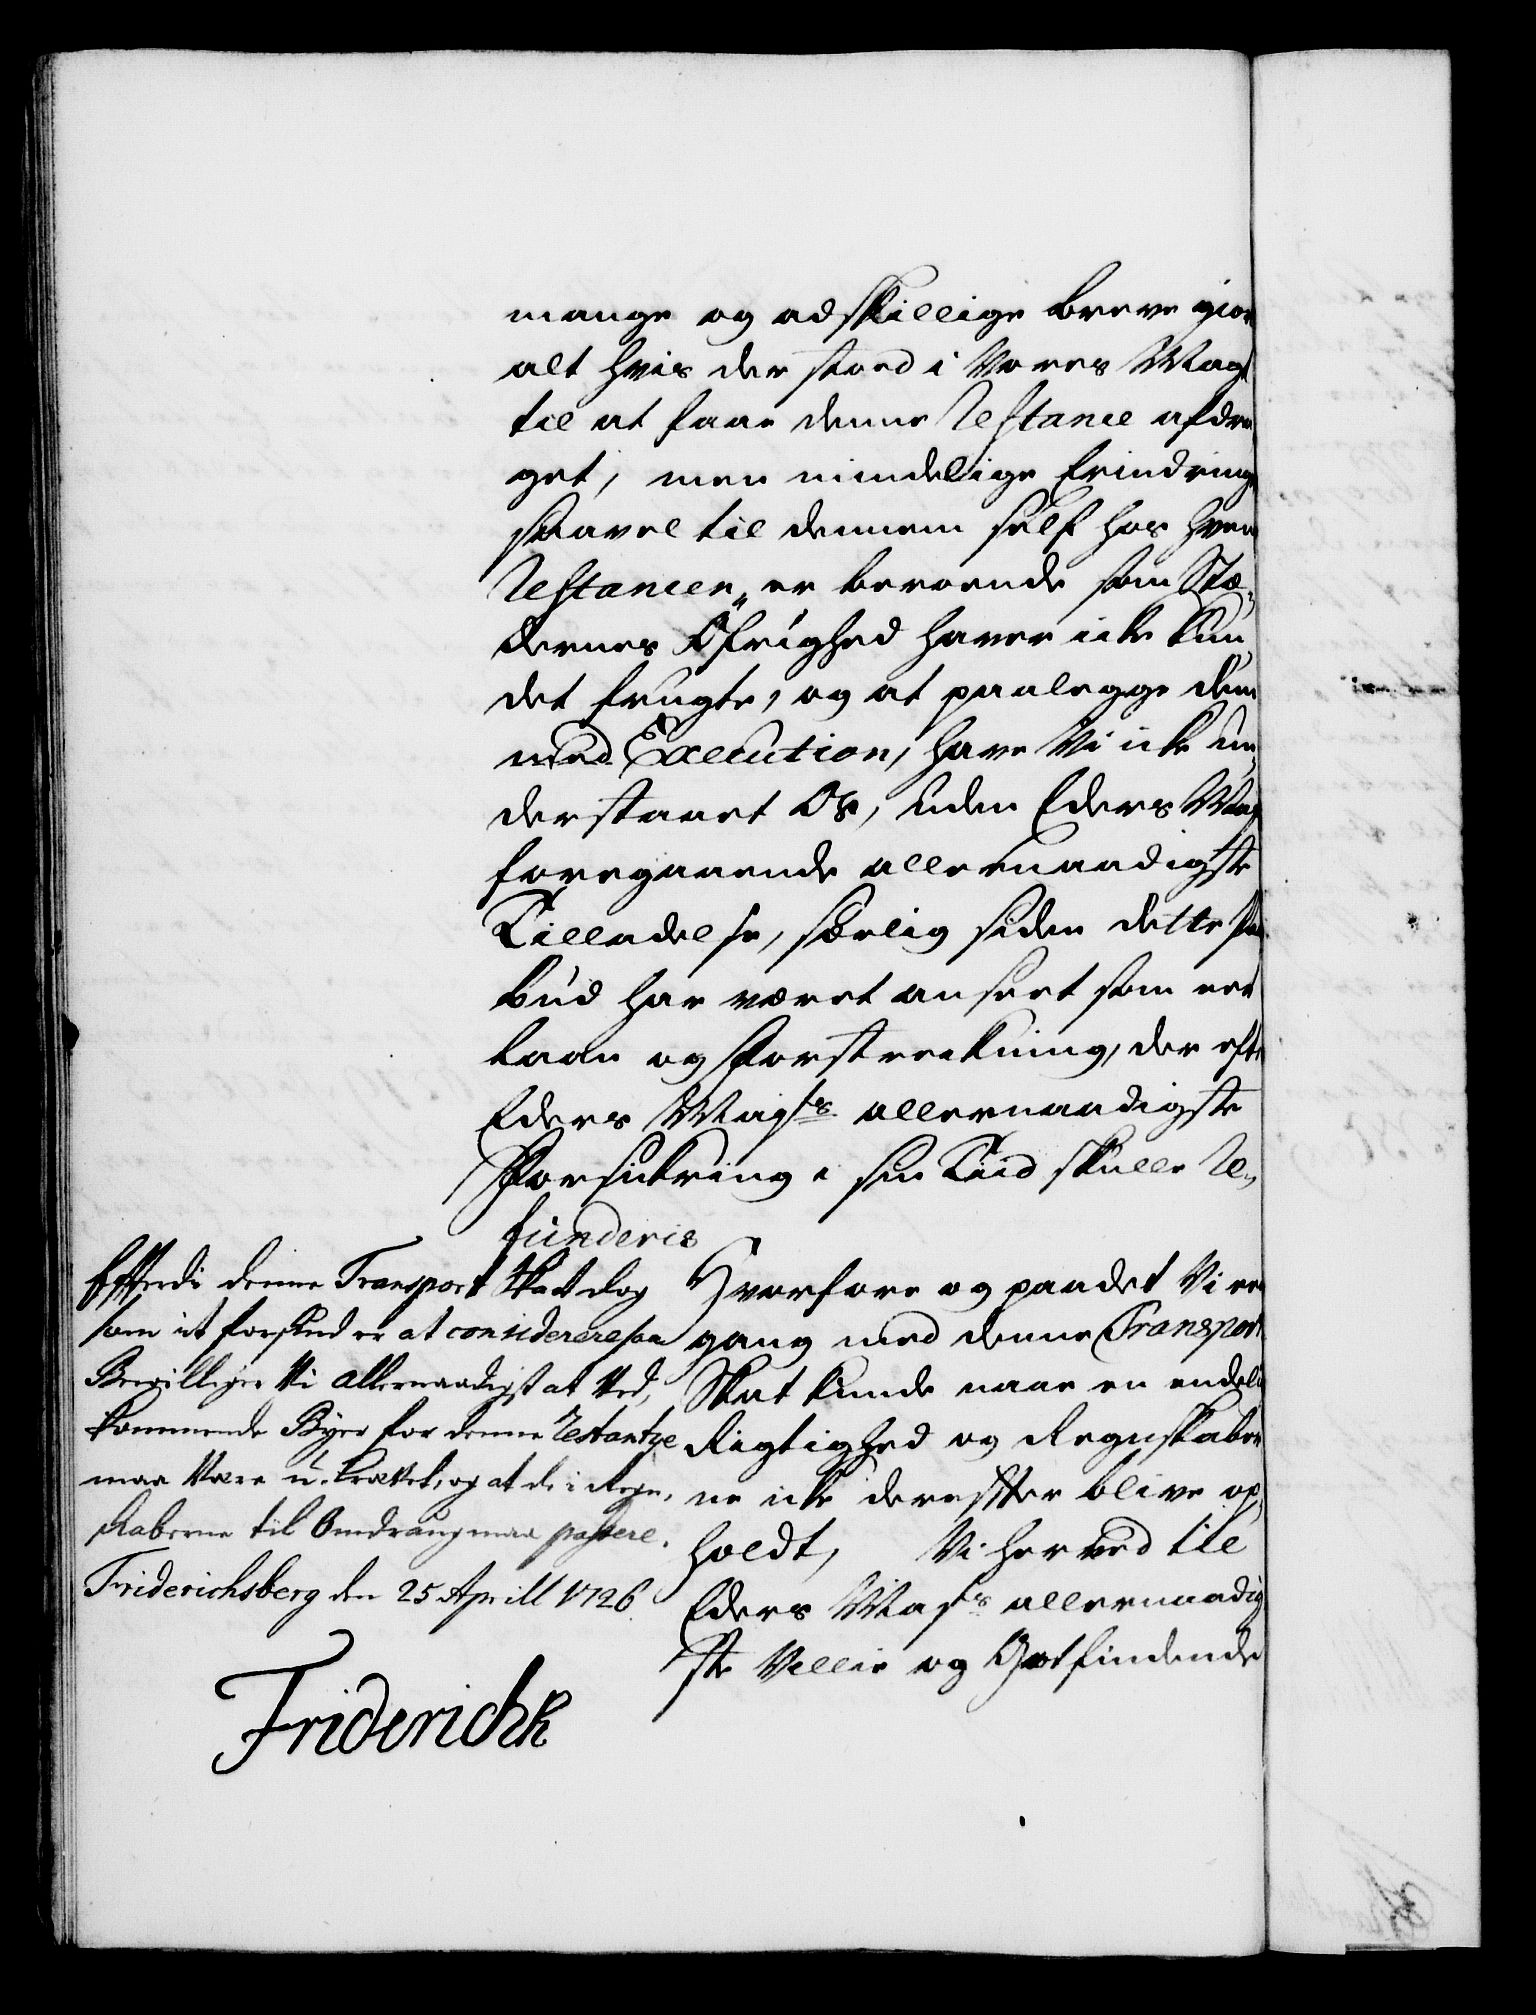 mange og adskillige breve gior
alt hvis der stoed i Vores Magt
til at faae denne Restance afdra
get, men mindelige Erindringe
saavel til dennem self hos hvem
Restancen er beroende som Stæ-
dernes Øfrighed haver icke kun
det frugte, og at paalegge dem
med Execution, have Vi icke un
derstaaet Os, uden Eders May
foregaaende allernaadigste
Tilladelse, særlig siden dette Paa
bud har været anseet som eet
laan og Forstreckning, der efter
Eders Mayts allernaadigste
Forsickring i sin Tiid skulle Re-
funderis
Hvorfore og paa det Vi een
gang med denne Transport
Skat kunde naae en endelig
Rigtighed og Regnskaber
ne icke derefter blive op
holdt, Vi herved til
Eders Mayts allernaadig
ste Villie og Gotfindende
Efterdi denne Transport Skat dog
som it forskud er at considerere saa
Bevilliger Vi Allernaadigst at Ved,
kommende Byer for denne Restantze
maa være u-krævet, og at de i Regn,
skaberne til Omdrang maa passere.
Friderichsberg den 25 Aprill 1726
Friderich R